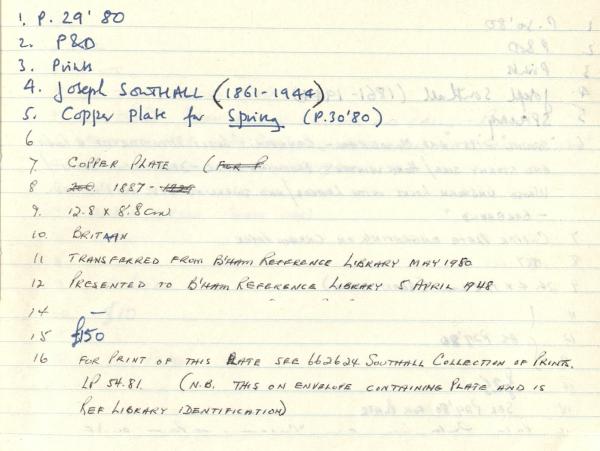 1. P. 29'80
2. P&D
3. Prints
4. Joseph SOUTHALL (1861-1944)
5. Copper Plate for Spring (P.30'80)
6
7. COPPER PLATE (FOR P.
8 1887-
9. 12.8 x 8.8cm
10. BRITAIN
11 TRANSFERRED FROM B'HAM REFERENCE LIBRARY MAY 1980
12 PRESENTED TO B'HAM REFERENCE LIBRARY 5 APRIL 1948
14 —
15 £150
16 FOR PRINT OF THIS PLATE SEE 662624 SOUTHALL COLLECTION OF PRINTS.
LP 54.81. (N.B. THIS ON ENVELOPE CONTAINING PLATE AND IS
REF LIBRARY IDENTIFICATION)